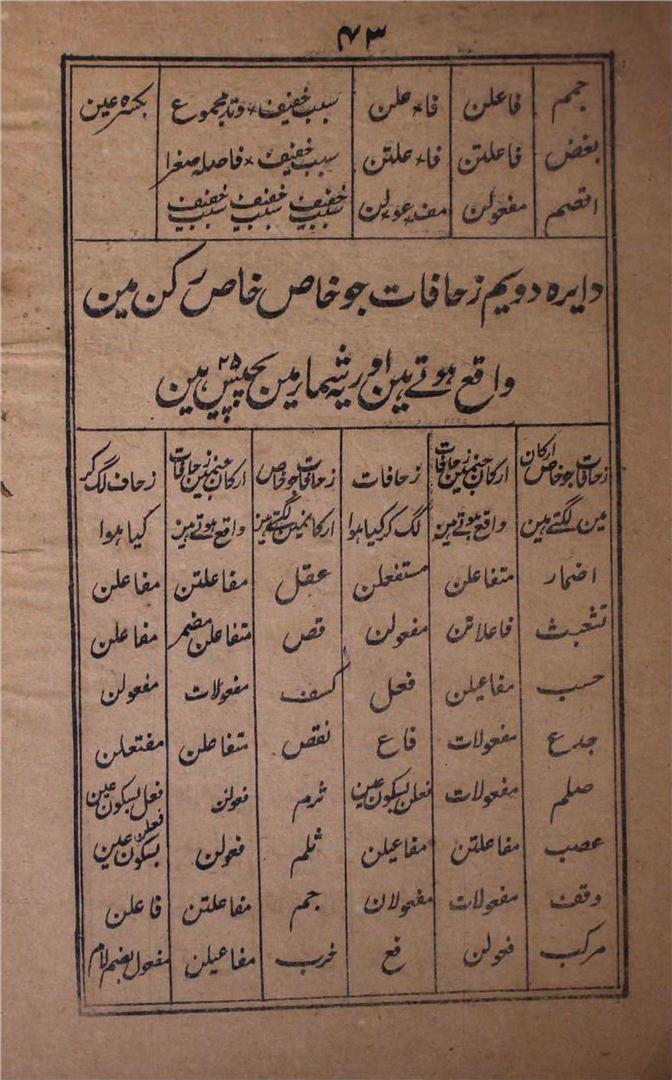 ۴۳
جمم فاعلن فا+علن سبب خفیف+وتد مجموع بکسرہ عین
بغض فاعلتن فا+علتن سبب خفیف+فاصلہ صغرا
اقصم مفعولن مف+عو+لن سبب خفیف سبب خفیف سبب خفیف
دایرہ دویم زحافات جو خاص خاص رکن مین
واقع ہوتے ہین اور یہ شمار مین پچیس ۲۵ ہین
زحافات جو خاص ارکان ارکان جنمین زحافات زحافات زحافات جو خاص ارکان جنمین زحافات زحاف لگ کر
مین لگتے ہین واقع ہوتے ہین لگ کر کیا ہوا ارکانمین لگتے ہین واقع ہوتے ہین کیا ہوا
اضمار متفاعلن مستفعلن عقل مفاعلتن مفاعلن
تشعیث فاعلاتن مفعولن قص متفاعلن مضمر مفاعلن
حسب مفاعیلن فعل کسف مفعولات مفعولن
جدع مفعولات فاع نقص متفاعلن مفتعلن
صلم مفعولات فعلن بسکون عین ثرم فعولن فعل بسکون عین
عصب مفاعلتن مفاعیلن ثلم فعولن فعلن بسکون عین
وقف مفعولات مفعولان جمم مفاعلتن فاعلن
مرکب فعولن فع خرب مفاعیلن مفعول بضم لام